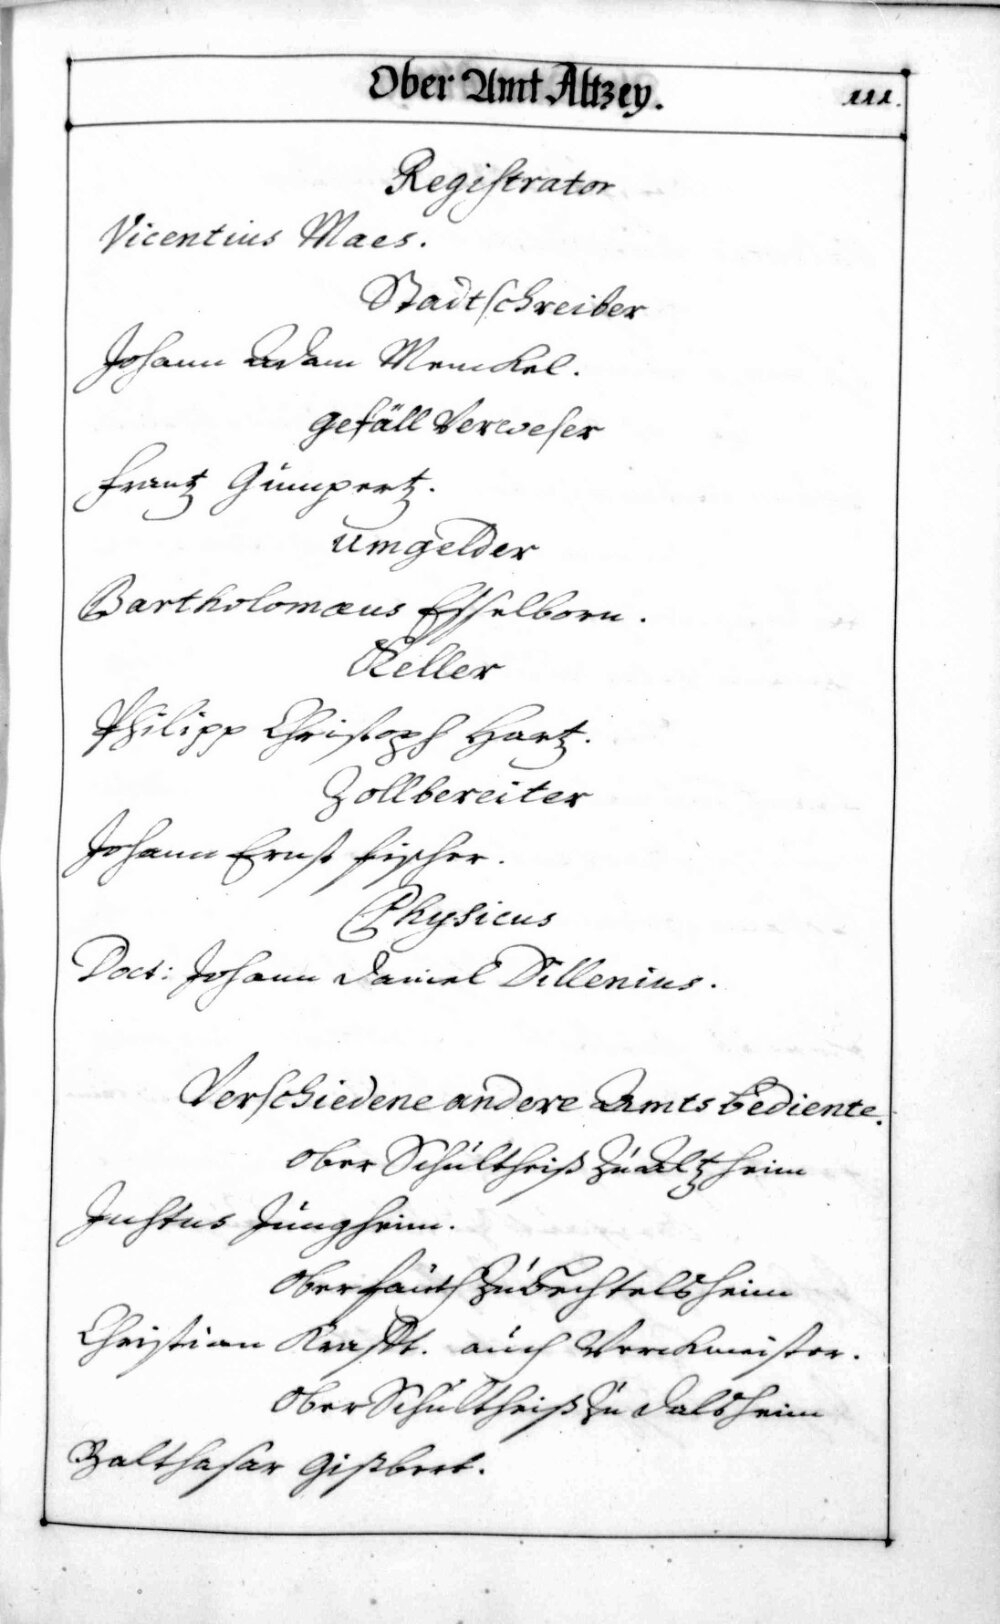 Ober Amt Altzey.
111.
Registrator
Vicentius Maes.
Stadtschreiber
Johann Adam Menckel.
gefäll Verweser
Frantz Gümpertz.
Umgelder
Bartholomæus Esselborn.
Keller
Philipp Christoph Hartz.
Zollbereiter
Johann Ernst Fischer.
Physicus
Doct: Johann Daniel Dillenius.
Verschiedene andere Amts bediente.
Ober Schültheiß zu Altzheim
Justus Jüngheim.
Oberfauth zu Bechtelsheim
Christian Krafft. auch Werckmeister.
Ober Schultheiß zu Dalsheim
Balthasar Gißbert.